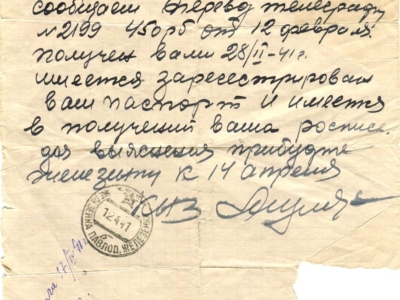 сообщаем перевод телеграф
№2199 450рб от 12 февраля
получен вами 28/II-41г.
имеется зарегестрирован
ваш паспорт и имеется
в получений ваша роспись
для выяснения прибудте
Железинку к 14 апреля
12.4.41